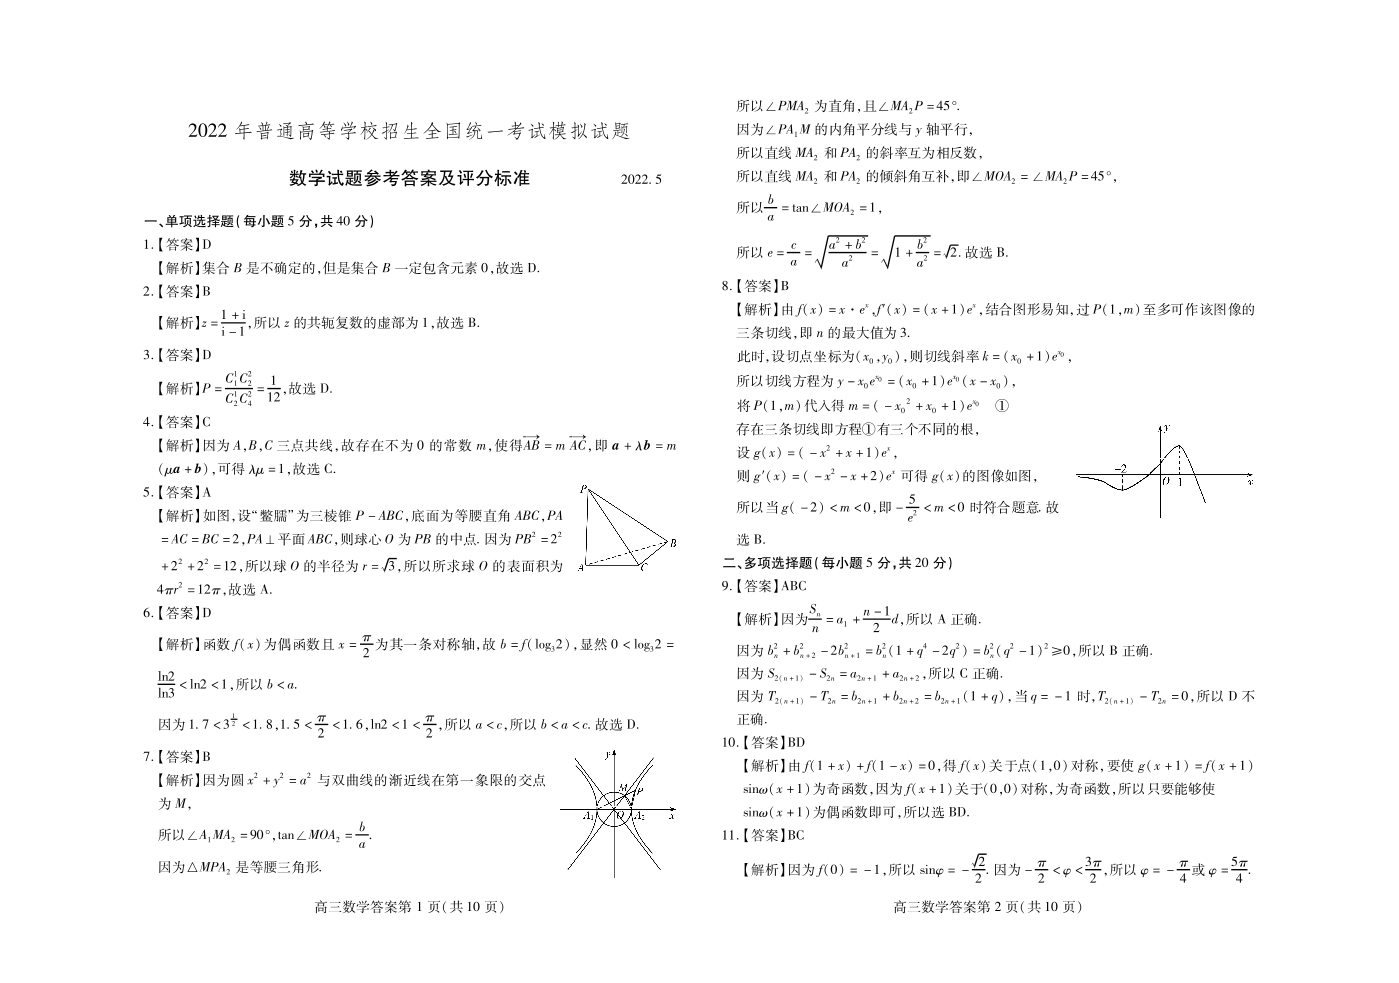 2022 年普通高等学校招生全国统一考试模拟试题
数学试题参考答案及评分标准 2022.5
一、单项选择题(每小题 5 分,共 40 分)
1.【答案】D
【解析】集合 B 是不确定的,但是集合 B 一定包含元素 0,故选 D.
2.【答案】B
【解析】z = (1+i)/(i−1),所以 z 的共轭复数的虚部为 1,故选 B.
3.【答案】D
【解析】P = (C₁¹C₂²)/(C₂¹C₄²) = 1/12,故选 D.
4.【答案】C
【解析】因为 A,B,C 三点共线,故存在不为 0 的常数 m,使得 \overrightarrow{AB} = m \overrightarrow{AC},即 a + λb = m
(μa + b),可得 λμ = 1,故选 C.
5.【答案】A
【解析】如图,设“鳖臑”为三棱锥 P − ABC,底面为等腰直角 ABC,PA
= AC = BC = 2,PA⊥平面 ABC,则球心 O 为 PB 的中点. 因为 PB² = 2²
+ 2² + 2² = 12,所以球 O 的半径为 r = √3,所以所求球 O 的表面积为
4πr² = 12π,故选 A.
P
B
A
C
6.【答案】D
【解析】函数 f(x) 为偶函数且 x = π/2 为其一条对称轴,故 b = f(log₃2),显然 0 < log₃2 =
ln2/ln3 < ln2 < 1,所以 b < a.
因为 1.7 < 3^{1/2} < 1.8,1.5 < π/2 < 1.6,ln2 < 1 < π/2,所以 a < c,所以 b < a < c. 故选 D.
7.【答案】B
【解析】因为圆 x² + y² = a² 与双曲线的渐近线在第一象限的交点
为 M,
所以∠A₁MA₂ = 90°,tan∠MOA₂ = b/a.
因为△MPA₂ 是等腰三角形.
y
M
P
A₁
O
A₂
x
高三数学答案第 1 页(共 10 页)
所以∠PMA₂ 为直角,且∠MA₂P = 45°.
因为∠PA₁M 的内角平分线与 y 轴平行,
所以直线 MA₂ 和 PA₂ 的斜率互为相反数,
所以直线 MA₂ 和 PA₂ 的倾斜角互补,即∠MOA₂ = ∠MA₂P = 45°,
所以 b/a = tan∠MOA₂ = 1,
所以 e = c/a = √((a² + b²)/a²) = √(1 + b²/a²) = √2. 故选 B.
8.【答案】B
【解析】由 f(x) = x · eˣ,f′(x) = (x+1)eˣ,结合图形易知,过 P(1,m) 至多可作该图像的
三条切线,即 n 的最大值为 3.
此时,设切点坐标为(x₀,y₀),则切线斜率 k = (x₀ + 1)e^{x₀},
所以切线方程为 y − x₀e^{x₀} = (x₀ + 1)e^{x₀}(x − x₀),
将 P(1,m) 代入得 m = (−x₀² + x₀ + 1)e^{x₀} ①
存在三条切线即方程①有三个不同的根,
设 g(x) = (−x² + x + 1)eˣ,
则 g′(x) = (−x² − x + 2)eˣ 可得 g(x) 的图像如图,
所以当 g(−2) < m < 0,即 −5/e² < m < 0 时符合题意. 故
选 B.
y
−2
O
1
x
二、多项选择题(每小题 5 分,共 20 分)
9.【答案】ABC
【解析】因为 Sₙ/n = a₁ + (n−1)/2 d,所以 A 正确.
因为 b²ₙ + b²ₙ₊₂ − 2b²ₙ₊₁ = b²ₙ(1 + q⁴ − 2q²) = b²ₙ(q² − 1)² ≥ 0,所以 B 正确.
因为 S₂₍ₙ₊₁₎ − S₂ₙ = a₂ₙ₊₁ + a₂ₙ₊₂,所以 C 正确.
因为 T₂₍ₙ₊₁₎ − T₂ₙ = b₂ₙ₊₁ + b₂ₙ₊₂ = b₂ₙ₊₁(1 + q),当 q = −1 时,T₂₍ₙ₊₁₎ − T₂ₙ = 0,所以 D 不
正确.
10.【答案】BD
【解析】由 f(1+x) + f(1−x) = 0,得 f(x) 关于点(1,0)对称,要使 g(x+1) = f(x+1)
sinω(x+1) 为奇函数,因为 f(x+1) 关于(0,0)对称,为奇函数,所以只要能够使
sinω(x+1) 为偶函数即可,所以选 BD.
11.【答案】BC
【解析】因为 f(0) = −1,所以 sinφ = −√2/2. 因为 −π/2 < φ < 3π/2,所以 φ = −π/4 或 φ = 5π/4.
高三数学答案第 2 页(共 10 页)